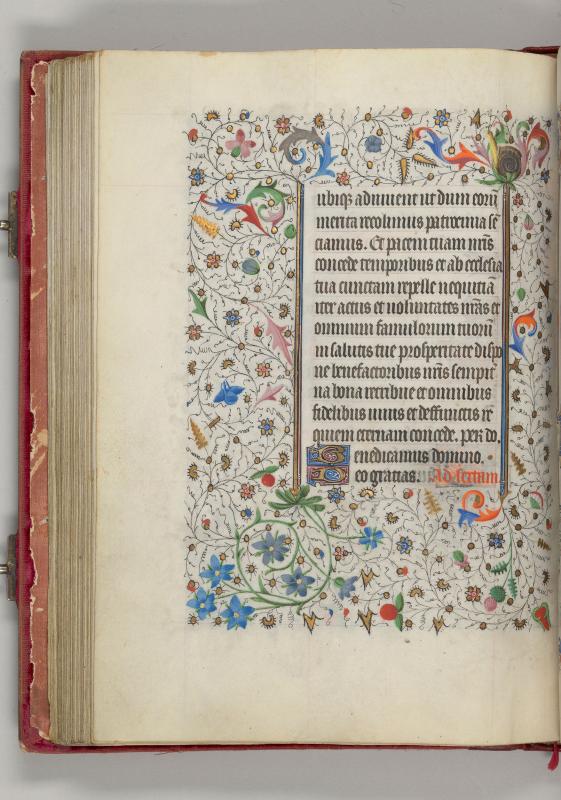 ubiq3 adiuuent ut dum eorū
merita recolimus patrocinia sē
ciamus. Et pacem tuam nr̄is
concede temporibus et ab ecclesia
tua cunctam repelle nequitiā
iter actus et uoluntates nr̄as et
omnium famulorum tuorū
in salutis tue prosperitate dispo
ne benefactoribus nr̄is sempit̄
na bona retribue et omnibus
fidelibus uiuis et deffunctis re
quiem eternam concede. per do.
Benedicamus domino.
Deo gratias. Ad sextam